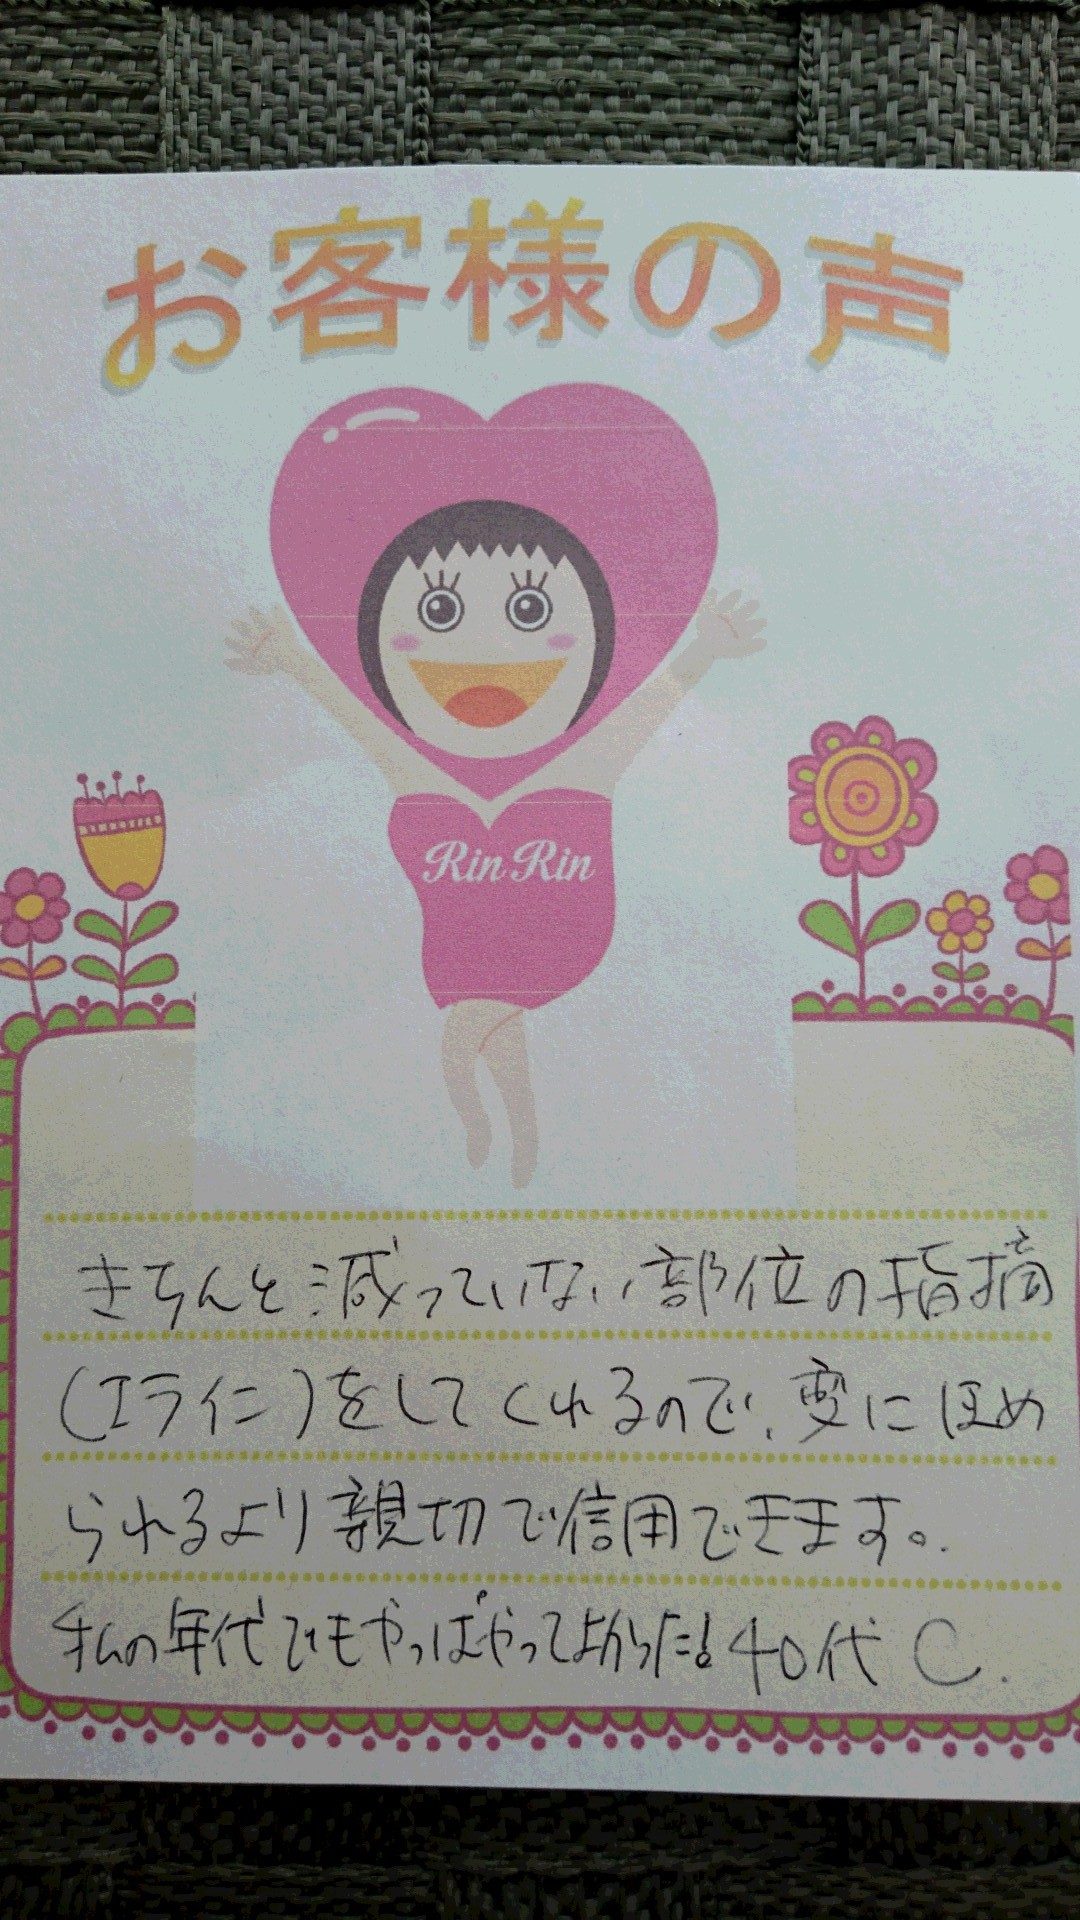 お客様の声
Rin Rin
きちんと減っていない部位の指摘
(Iライン)をしてくれるので、変にほめ
られるより親切で信用できます。
私の年代でもやっぱやってよかった! 40代 C.